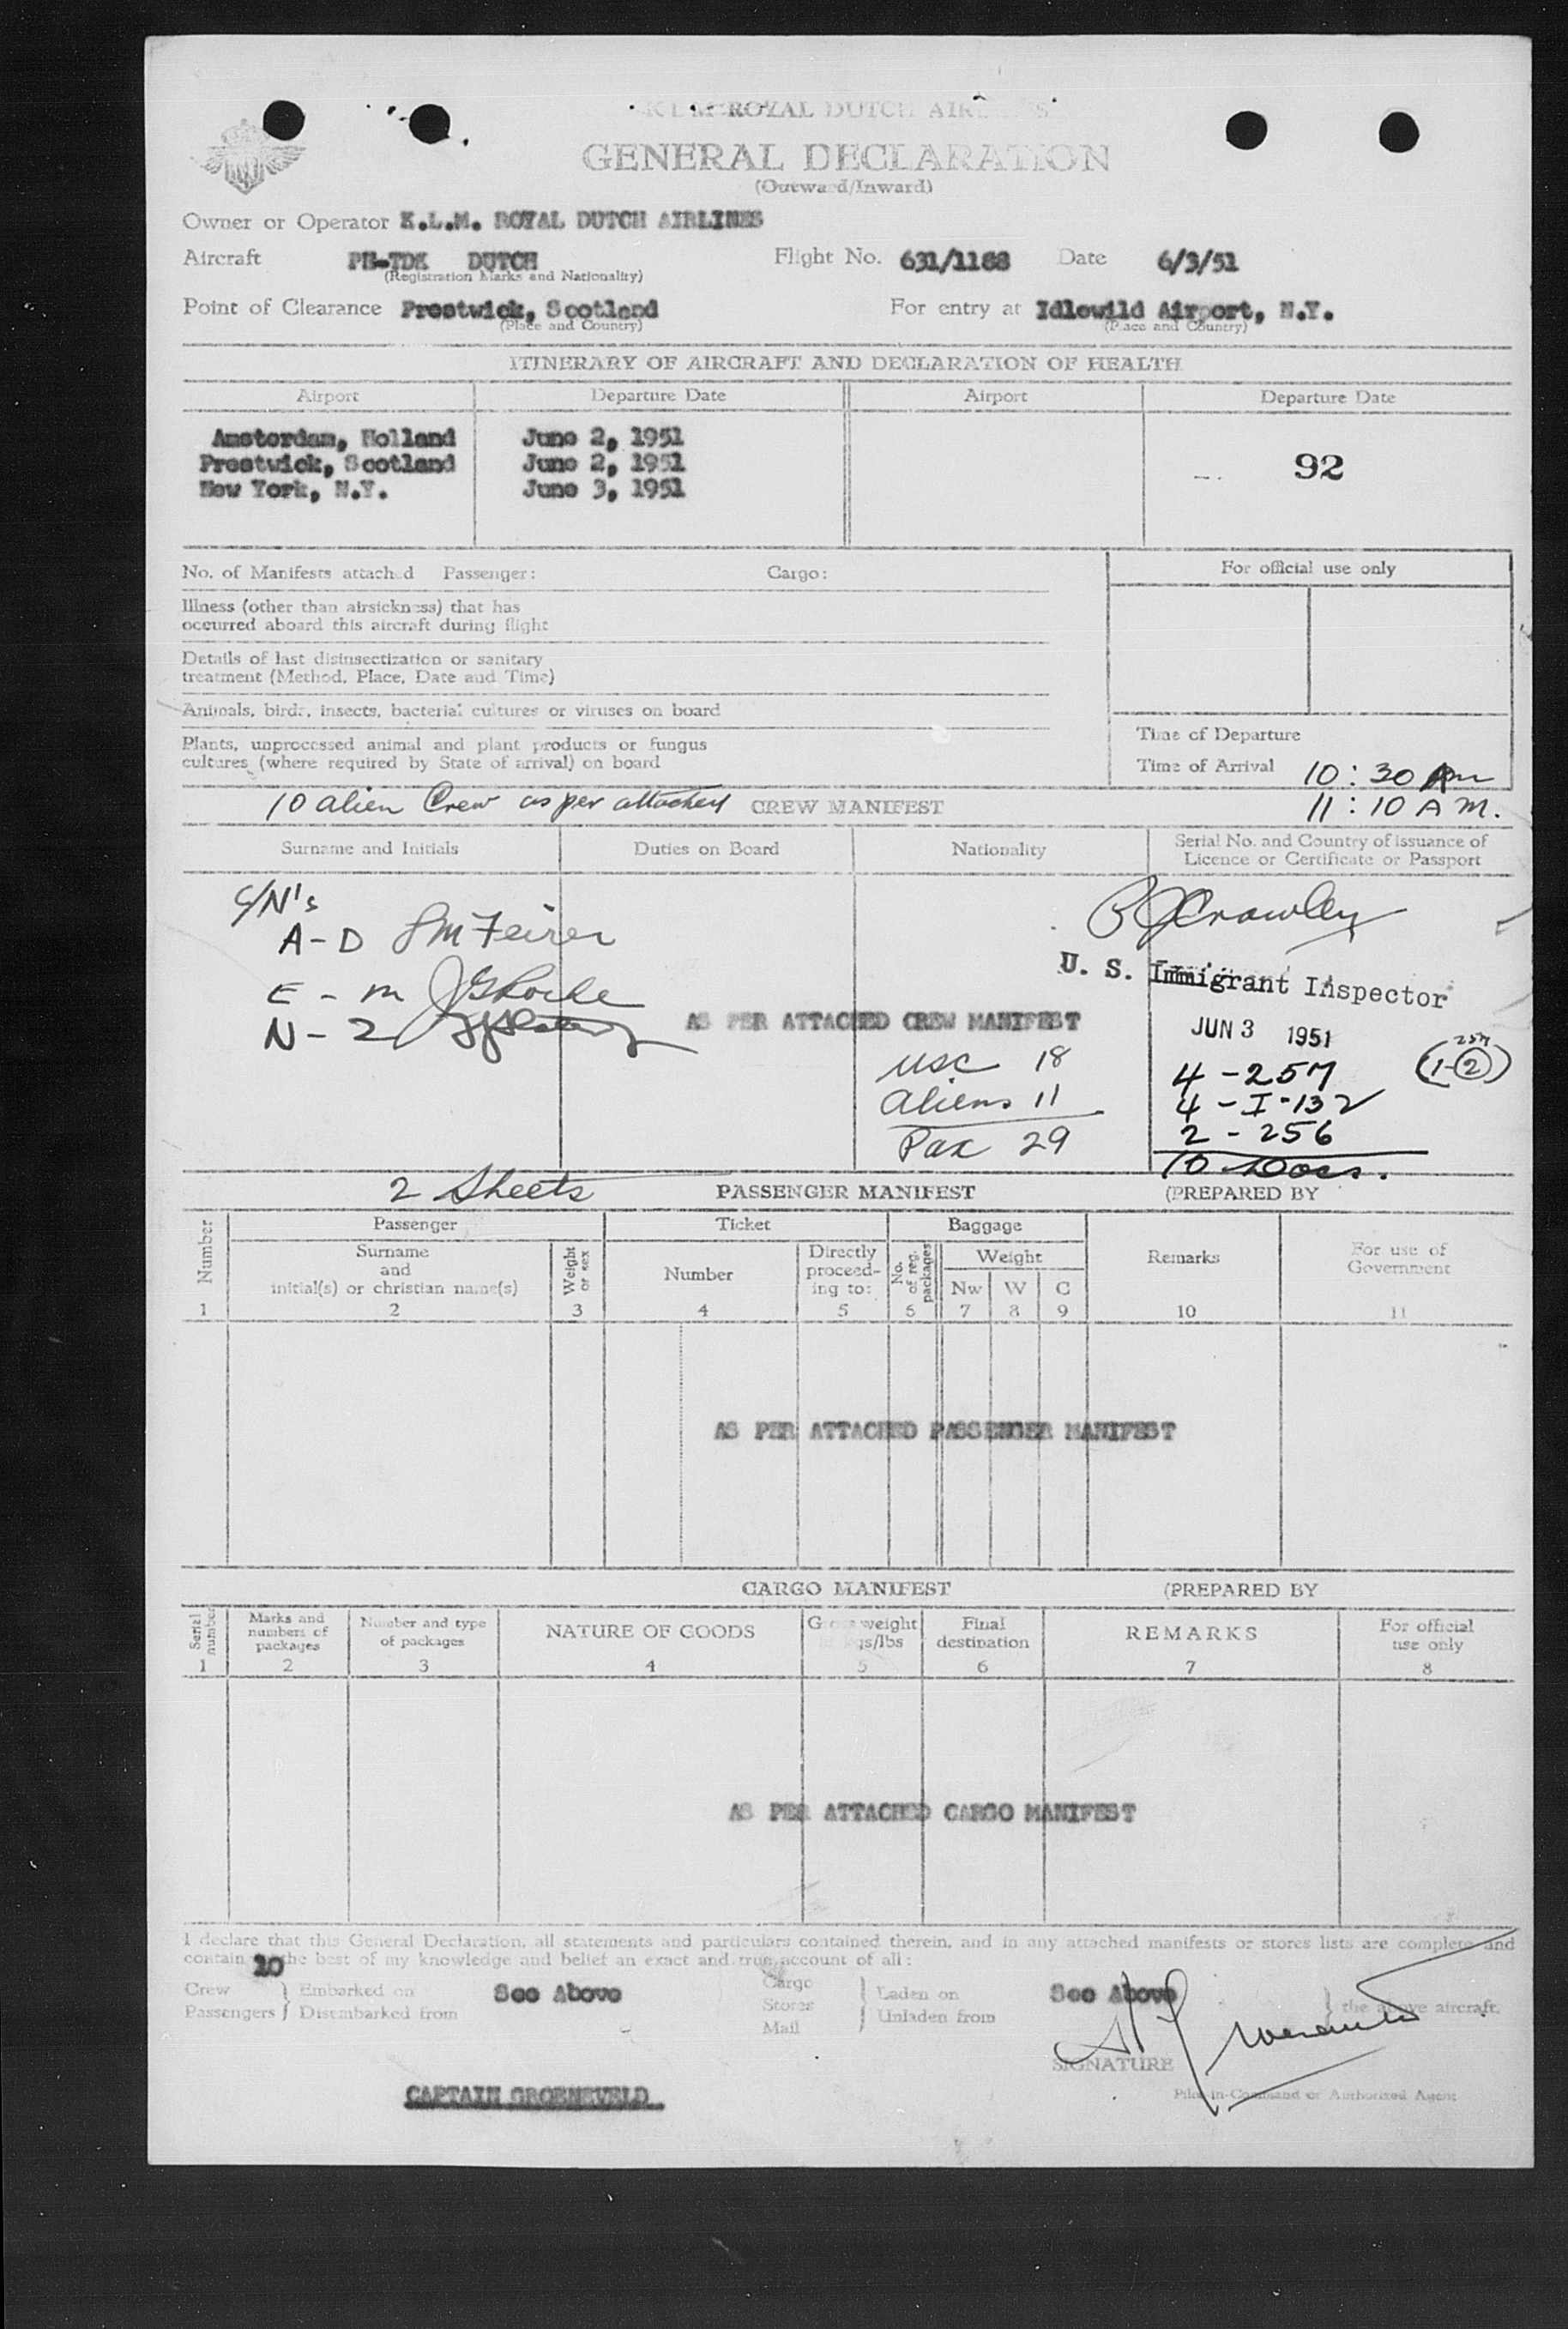 K L M ROYAL DUTCH AIRLINES
GENERAL DECLARATION
(Outward/Inward)
Owner or Operator K.L.M. ROYAL DUTCH AIRLINES
Aircraft PH-TDK DUTCH Flight No. 631/1188 Date 6/3/51
(Registration Marks and Nationality)
Point of Clearance Prestwick, Scotland For entry at Idlewild Airport, N.Y.
(Place and Country) (Place and Country)
ITINERARY OF AIRCRAFT AND DECLARATION OF HEALTH
Airport Departure Date Airport Departure Date
Amsterdam, Holland June 2, 1951
Prestwick, Scotland June 2, 1951 92
New York, N.Y. June 3, 1951
No. of Manifests attached Passenger: Cargo: For official use only
Illness (other than airsickness) that has
occurred aboard this aircraft during flight
Details of last disinsectization or sanitary
treatment (Method, Place, Date and Time)
Animals, birds, insects, bacterial cultures or viruses on board
Plants, unprocessed animal and plant products or fungus
cultures (where required by State of arrival) on board
Time of Departure
Time of Arrival 10:30 Am
10 alien Crew as per attached CREW MANIFEST 11:10 AM.
Surname and Initials Duties on Board Nationality Serial No. and Country of issuance of
Licence or Certificate or Passport
C/N's
A-D
E-M
N-Z
Crowley
U. S. Immigrant Inspector
AS PER ATTACHED CREW MANIFEST JUN 3 1951
usc 18 4-257 (1-2) 257
aliens 11 4-I-132
Pax 29 2-256
10 Docs.
2 Sheets PASSENGER MANIFEST (PREPARED BY
Number Passenger Ticket Baggage Remarks For use of
Government
Surname
and
initial(s) or christian name(s)
Weight
or sex
Number Directly
proceed-
ing to:
No.
of reg.
packages
Weight
Nw W C
1 2 3 4 5 6 7 8 9 10 11
AS PER ATTACHED PASSENGER MANIFEST
CARGO MANIFEST (PREPARED BY
Serial
number
Marks and
numbers of
packages
Number and type
of packages
NATURE OF GOODS
Gross weight
kgs/lbs
Final
destination
REMARKS
For official
use only
1 2 3 4 5 6 7 8
AS PER ATTACHED CARGO MANIFEST
I declare that this General Declaration, all statements and particulars contained therein, and in any attached manifests or stores lists are complete and
contain to the best of my knowledge and belief an exact and true account of all:
10
Crew Embarked on See Above Cargo Laden on See Above the above aircraft.
Passengers Disembarked from Stores Unladen from
Mail
SIGNATURE
CAPTAIN GROENEVELD Pilot-in-Command or Authorized Agent